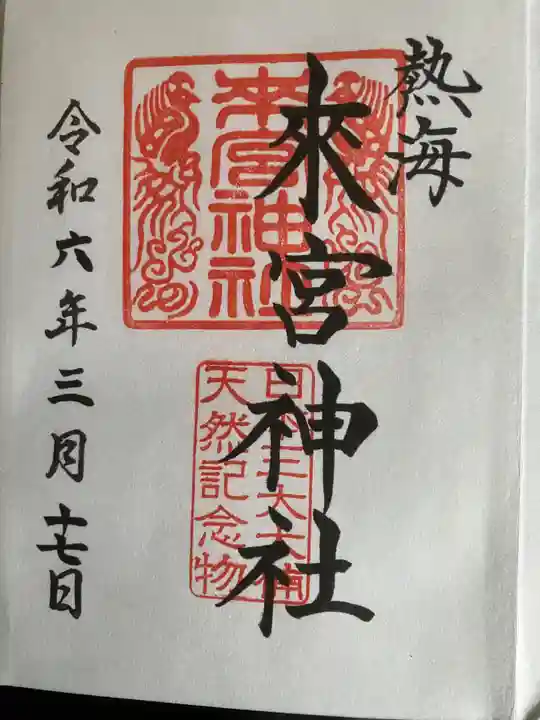 熱海
來宮神社
來宮神社
日本三大大楠
天然記念物
令和六年三月十七日